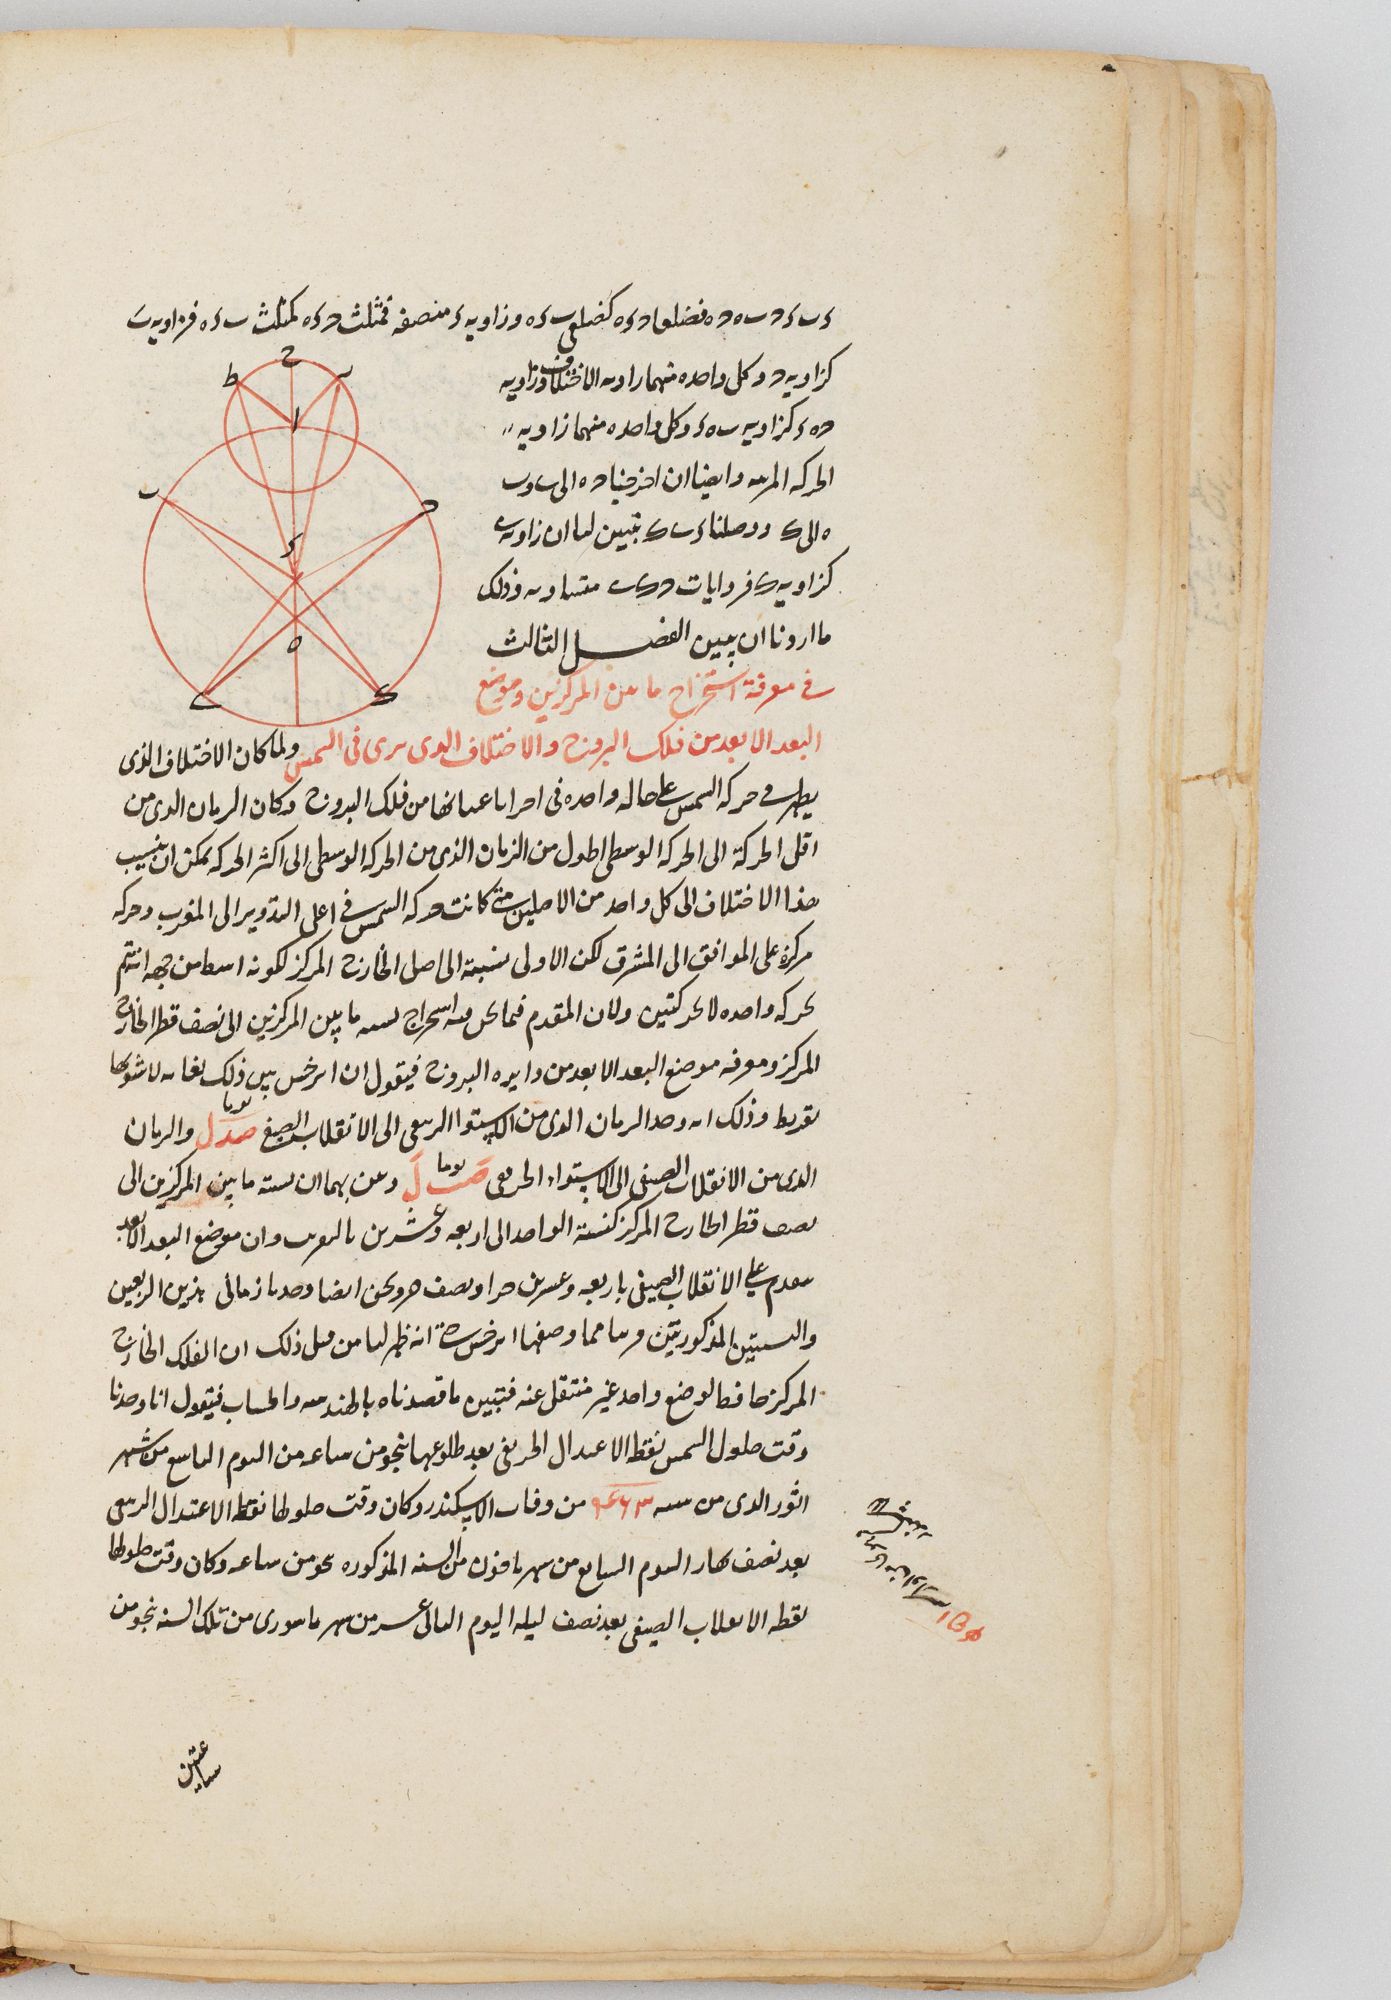 كزاويه ح وكل واحده منهما زاويه الاختلاف وزاويه
ح ه د كزاويه ب ه د وكل واحده منهما زاويه
الحركه المرئيه وايضا ان اخرجنا ح ه الى
ه الى ك ووصلنا تبين لنا ان زاويه
كزاويه ك فزوايات متساويه وذلك
ما اردنا ان يبين الفصل الثالث
فى معرفة استخراج ما بين المركزين وموضع
البعد الابعد من فلك البروج والاختلاف الدى يرى فى الشمس ولما كان الاختلاف الذى
يظهر فى حركه الشمس على حاله واحده فى اجزاء باعيانها من فلك البروج وكان الزمان الدى من
اقل الحركة الى الحركه الوسطى اطول من الزمان الذى من الحركه الوسطى الى اكثر الحركه يمكن ان ينسب
هذا الاختلاف الى كل واحد من الاصلين متى كانت حركه الشمس فى اعلى التدوير الى المغرب وحركه
مركزه على الموافق الى المشرق لكن الاولى نسبته الى اصل الخارج المركز لكونه ابسط من جهه انه يتم
بحركه واحده لا بحركتين ولان المقدم فيما نحن فيه استخراج نسبه ما بين المركزين الى نصف قطر الخارج
المركز ومعرفه موضع البعد الابعد من دايره البروج فيقول ان ابرخس بين ذلك بغايه لا شوبها
تفريط وذلك انه وجد الزمان الدى من الاستوا الربيعى الى الانقلاب الصيفى صد ل يوما والزمان
الدى من الانقلاب الصيفى الى الاستواء الخريفى صب ل يوما وبين بهما ان نسبته ما بين المركزين الى
نصف قطر الخارج المركز كنسبة الواحد الى اربعه وعشرين بالتقريب وان موضع البعد الابعد
متقدم على الانقلاب الصيفى باربعه وعشرين جزا ونصف جزو ونحن ايضا وجدنا زمانى هذين الربعين
والنسبتين المذكورتين قريبا مما وصفها ابرخس حتى انه ظهر لنا من قبل ذلك ان الفلك الخارج
المركز حافظ لوضع واحد غير منتقل عنه فتبين ما قصدناه بالهندسه والحساب فيقول انا وجدنا
وقت حلول الشمس نقطه الاعتدال الخريفى بعد طلوعها بنحو من ساعه من اليوم التاسع من شهر
اثور الدى من سنه ٤٦٣ من وفات الاسكندر وكان وقت حلولها نقطه الاعتدال الربيعى
بعد نصف نهار اليوم السابع من شهر باخون من السنه المذكوره بنحو من ساعه وكان وقت حلولها
نقطه الانقلاب الصيفى بعد نصف ليله اليوم الثانى عشر من شهر ماسورى من تلك السنه بنحو من
ساعتين